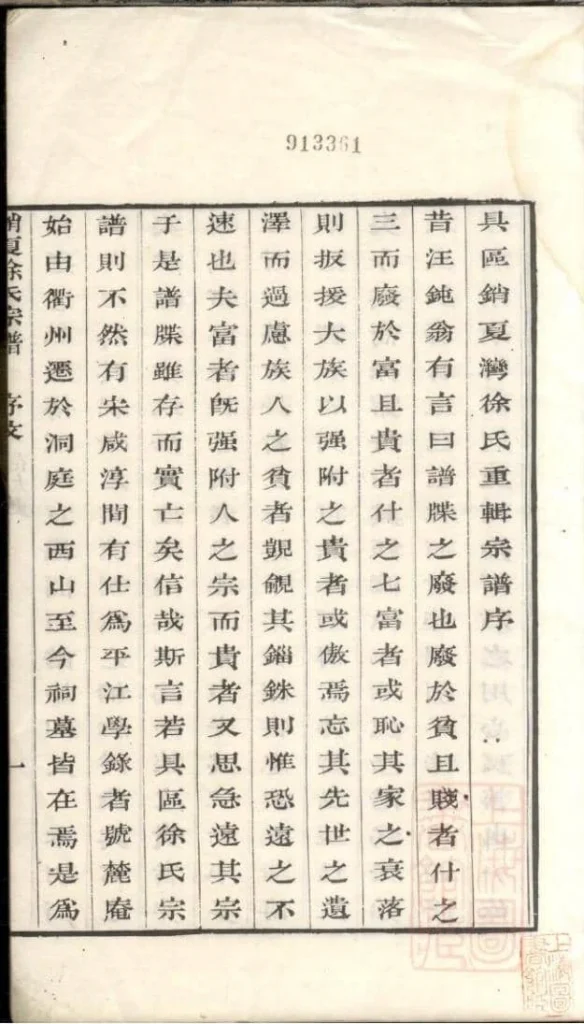 913361
具區銷夏灣徐氏重輯宗譜序
昔汪鈍翁有言曰譜牒之廢也廢於貧且賤者什之
三而廢於富且貴者什之七富者或恥其家之衰落
則扳援大族以强附之貴者或傲焉忘其先世之遺
澤而過慮族人之貧者覬覦其錙銖則惟恐遠之不
速也夫富者旣强附人之宗而貴者又思急遠其宗
于是譜牒雖存而實亡矣信哉斯言若具區徐氏宗
譜則不然有宋咸淳間有仕爲平江學錄者號麓庵
始由衢州遷於洞庭之西山至今祠墓皆在焉是爲
銷夏徐氏宗譜 序文 一